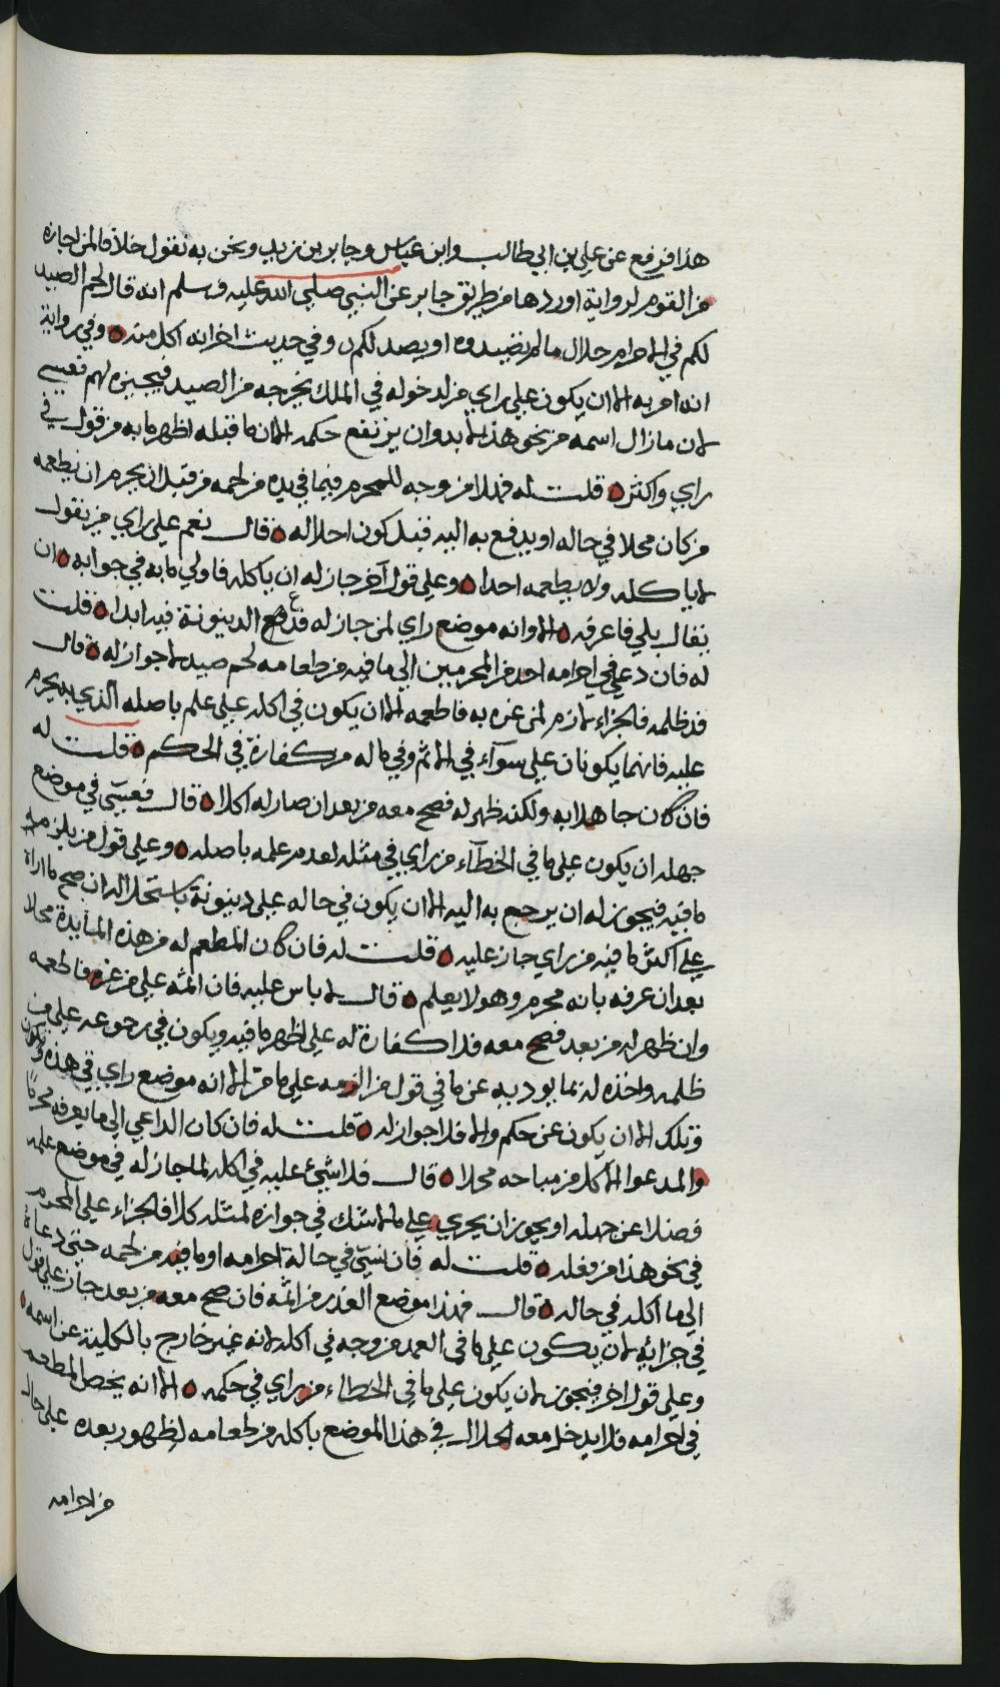 هذا قد رفع عن علي بن ابي طالب وابن عباس وجابر بن زيد ونحن به نقول خلافا لمن اجازه
من القوم لرواية اوردها من طريق جابر عن النبي صلي الله عليه وسلم انه قال لحم الصيد
لكم في الاحرام حلال ما لم تصيدوه او يصد لكم وفي حديث اخر انه اكل منه وفي رواية
انه امر به الا ان يكون علي راي من له دخوله في الملك يخرجه من الصيد فيجيزه لهم فعسي
لان ما زال اسمه من نحو هذا لا بد وان يرتفع حكمه الا ان ما قبله اظهر ما به من قول في
راي واكثر قلت له فهلا من وجه للمحرم فيما في يده من لحمه من قبل ان يحرم ان يطعمه
من كان محلا في حاله او يدفع به اليه قبل كون احلاله قال نعم علي راي من يقول
لا ياكله ولا يطعمه احدا وعلي قول آخر جاز له ان ياكله فاولي ما به في جوابه ان
يقال بلي فاعرفه الا وانه موضع راي لمن جاز له فدع الدينونة فيه ابدا قلت
له فان دعي في احرامه احد من المحرمين الي ما فيه من طعامه لحم صيد لا جواز له قال
قد ظلمه فالجزاء لازم لمن غره به فاطعمه الا ان يكون في اكله علي علم باصله الذي به يحرم
عليه فانهما يكونان علي سوآء في الاثم وفي ماله من كفارة في الحكم قلت له
فان كان جاهلا به ولكنه ظهر له فصح معه من بعد ان صار له اكلا قال فعسي في موضع
جهله ان يكون علي ما في الخطآء من راي في مثله لعدم علمه باصله وعلي قول من يلزمه
ما فيه فيجوز له ان يرجع به اليه الا ان يكون في حاله علي دينونة باستحلاله ان صح ما اراه
علي اكثر ما فيه من راي جاز عليه قلت له فان كان المطعم له من هذه المايدة محلا
بعد ان عرفه بانه محرم وهو لا يعلم قال لا باس عليه فان اثمه علي من غره فاطعمه
وان ظهر له من بعد فصح معه فلا كفارة له علي اظهر ما فيه ويكون في رجوعه علي من
ظلمه واخذه له بما يوديه عن ما في قول من الزمه علي ما مر الا انه موضع راي في هذه
وتلك الا ان يكون عن حكم والا فلا جواز له قلت له فان كان الداعي الي ما يعرفه محرما
والمدعوا لاكل من مباحه محلا قال فلا شيء عليه في اكله لما جاز له في موضع علمه
فضلا عن جهله او يجوز ان يجري علي ما لا شك في جوازه لمثله كلا فالجزاء علي المحرم
في نحو هذا من فعله قلت له فان نسي في حالة احرامه او ما فيه من لحمه حتي دعاه
الي ما اكله في حاله قال فهذا موضع العذر من اثمه فان صح معه من بعد جاز علي قول
في جزائه لان يكون علي ما في العمد من وجه في اكله لانه غير خارج بالكلية عن اسمه
وعلي قول اخر فيجوز لان يكون علي ما في الخطاء من راي في حكمه الا انه يخص المطعم
في احرامه فلا يدخل معه الحلال في هذا الموضع باكله من طعامه لظهور بعده علي حال
من الزامه